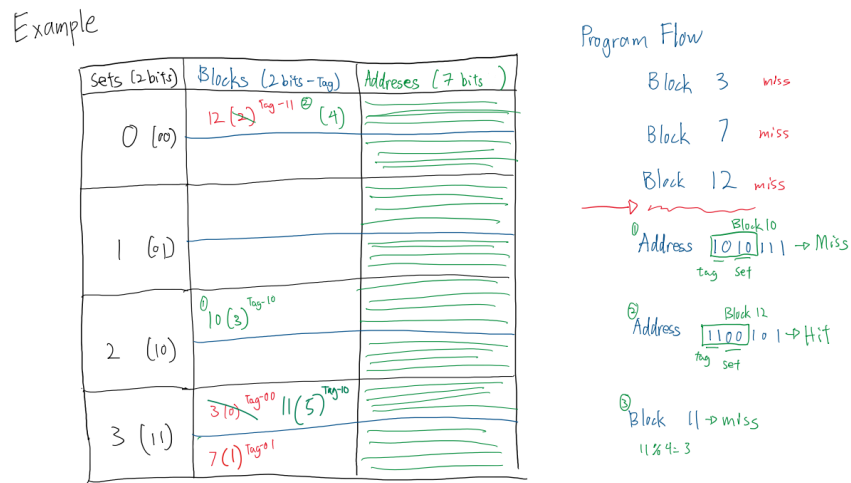 Example
Sets (2 bits) Blocks (2 bits-Tag) Addreses (7 bits)
0 (00) 12 (2) Tag-11 ② (4)
1 (01)
2 (10) ① 10 (3) Tag-10
3 (11) 3 (0) Tag-00 11 (5) Tag-10
7 (1) Tag-01
Program Flow
Block 3 miss
Block 7 miss
Block 12 miss
Block 10
① Address 1010111 → Miss
tag set
Block 12
② Address 1100101 → Hit
tag set
③ Block 11 → miss
11 % 4 = 3